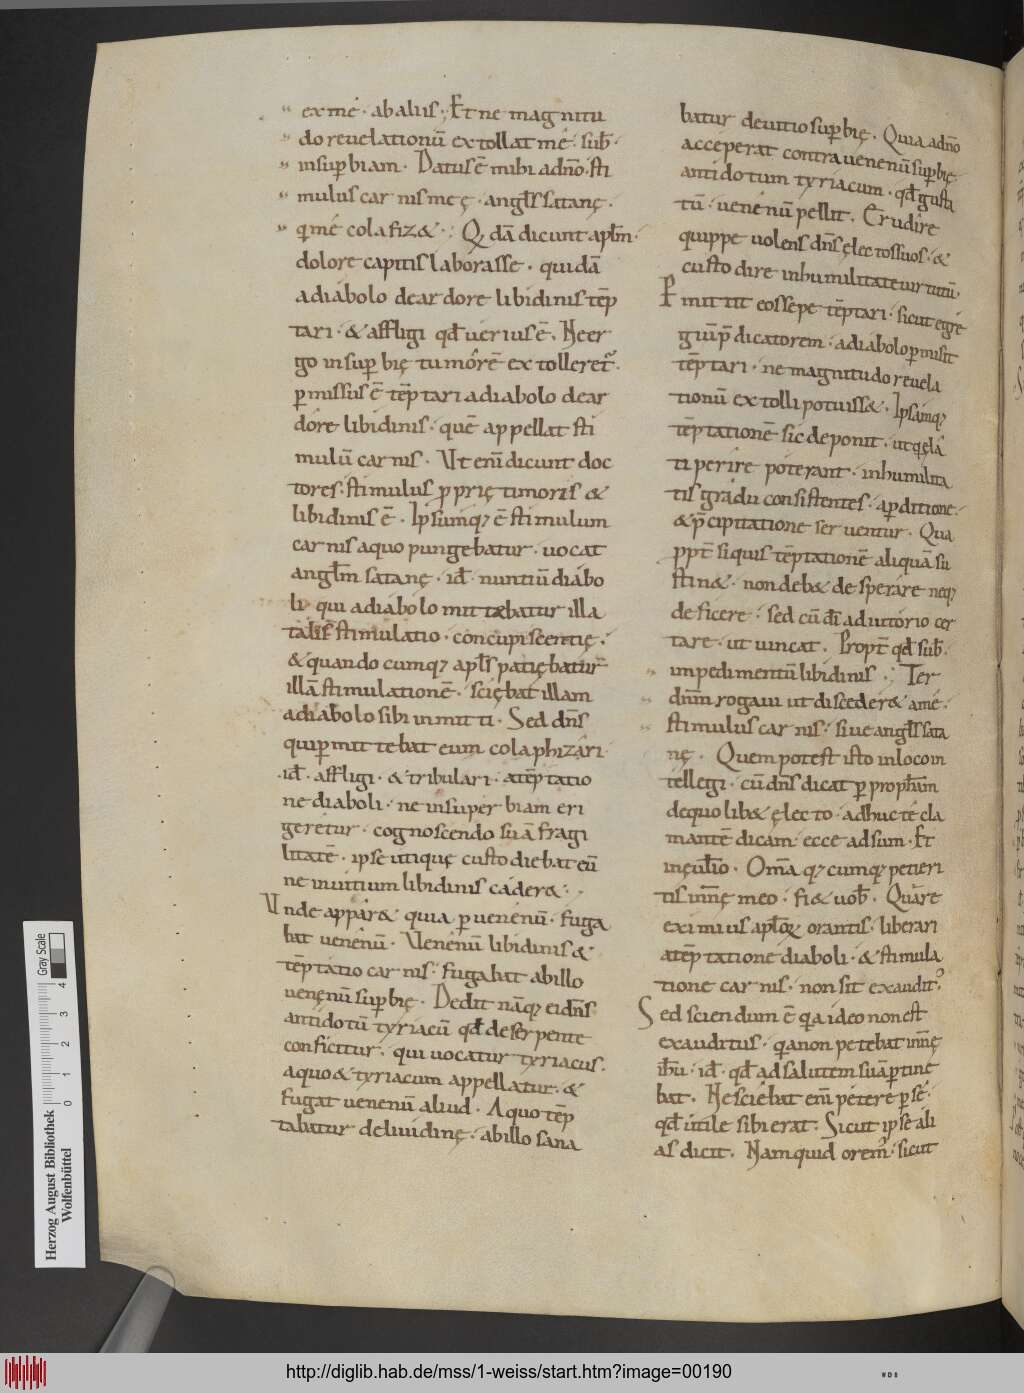 ex mé · ab aliis · ; Et ne magnitu
do revelationū extollat mē · sub̄ ·
in sup̱biam · Datus ē mihi a dn̄o · sti
mulus carnis meę · angl̄s satanę ·
q̄ mé colafiz& · ; Qdā dicunt apl̄m ·
dolore capitis laborasse · quidā
a diabolo de ardore libidinis tēp
tari · & affligi qđ verius ē · Ne er
go in sup̱bię tumorē extolleret᷑ ·
p̱missus ē tēptari a diabolo de ar
dore libidinis · quē appellat sti
mulū carnis · Ut eni̅ dicunt doc
tores · stimulus p̱prię timoris &
libidinis ē · Ipsumq; ē stimulum
carnis a quo pungebatur · vocat
angl̄m satanę · iđ · nuntiū diabo
li · qui a diabolo mittebatur illa
talis stimulatio · concupiscentię ·
& quandocumq; apl̄s patiębatur
illā stimulationē · sciębat illam
a diabolo sibi inmitti · Sed dn̄s
qui p̱mittebat eum colaphizari ·
iđ · affligi · & tribulari · a tēptatio
ne diaboli · ne in superbiam eri
geretur · cognoscendo suā fragi
litatē · ipse utique custodiebat eū
ne in vitium libidinis cader& ·
Unde appar& quia p̱ venenū · fuga
bat venenū · Venenū libidinis &
tēptatio carnis · fugabat ab illo
venęnū sup̱bię · Dedit nāq; ei dn̄s
antidotū tyriacū qđ de serpente
conficitur · qui vocatur tyriacus ·
a quo & tyriacum appellatur · &
fugat venenū aliud · A quo tēp
tabatur de livídinę · ab illo sana
batur de vitio sup̱bię · Quia a dn̄o
acceperat contra venenū sup̱bię ·
antidotum tyriacum · qđ gusta
tū · venenū pellit · Erudire
quippe volens dn̄s ęlectos suos · &
custodire in humilitate virtutū ·
P̱mittit eos sepe tēptari · sicut egre
giū p̄dicatorem · a diabolo p̱misit
tēptari · ne magnitudo revela
tionū extolli potuiss& · Ipsāmq;
tēptationē sic deponit · ut q̄ ęla
ti perire poterant · in humilita
tis gradu consistentes · a p̱ditione ·
& p̄cipitatione serventur · Qua
ppt̄ si quis tēptationē aliquā su
stin& · non deb& desperare neq;
deficere · sed cū dī adiutorio cer
tare · ut vincat · Propt̄ qđ sub̄ ·
impedimentū libidinis · ; Ter
dn̄m rogavi ut disceder& a mé ·
stimulus carnis · sive angl̄s sata
nę · Quem potest isto in loco in
tellegi · cū dn̄s dicat p̱ proph̄am
de quolib& ęlecto · adhuc té cla
mantē dicam · ecce adsum · Et
in ęvl̄io · Om̄a q;cumq; petieri
tis in n̄nę meo · fi& vob̄ · Quare
eximius apl̄oꝝ orantis · liberari
a tēptatione diaboli · & stimula
tione carnis · non sit exaudit᷒
Sed sciendum ē q̄a ideo non est
exauditus · q̄a non petebat in n̄nę
ih̄u · iđ · qđ ad salutem suā p̱tine
bat · Nesciebat eni̅ petere p̱ sé ·
qđ utile sibi erat · Sicut ipse ali
as dicit · Nam quid orem᷒ · sicut
Gray Scale
4
3
2
1
0
Herzog August Bibliothek
Wolfenbüttel
http://diglib.hab.de/mss/1-weiss/start.htm?image=00190